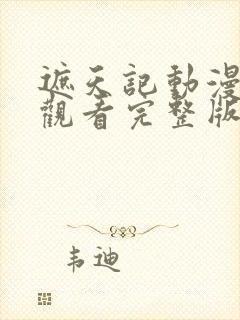 遮天記動漫
觀看完整版
韦迪